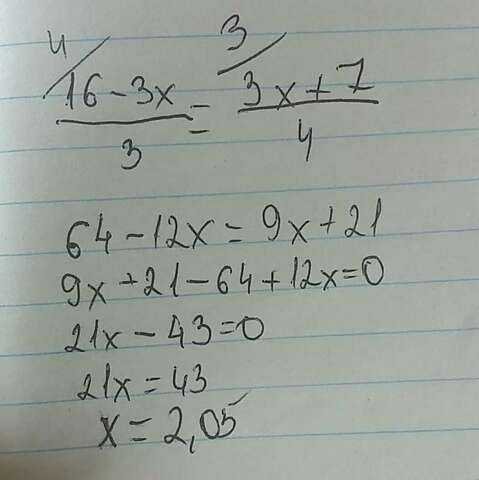 4 3
16-3x = 3x+7
3 4
64-12x=9x+21
9x+21-64+12x=0
21x-43=0
21x=43
x=2,05